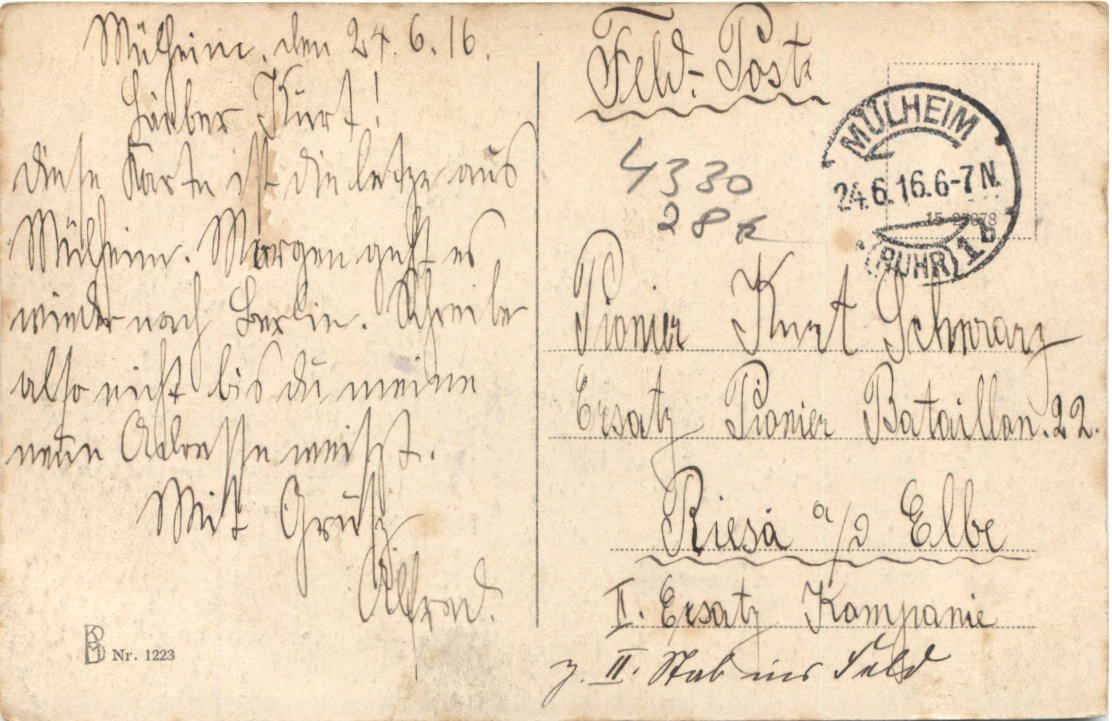 Mülheim, den 24.6.16.
Lieber Kurt!
diese Karte ist die letze aus
Mülheim. Morgen geht es
wieder nach Berlin. Schreibe
also nicht bis du meine
neue Adresse weißt.
Mit Gruß
Alfred.
BKD Nr. 1223
Feld-Post
4330
28 k
MÜLHEIM
24.6.16.6-7 N.
(RUHR) 1 b
Pionier Kurt Schwarz
Ersatz Pionier Bataillon. 22.
Riesa a/d Elbe
II. Ersatz Kompanie
z. II. Stab ins Feld